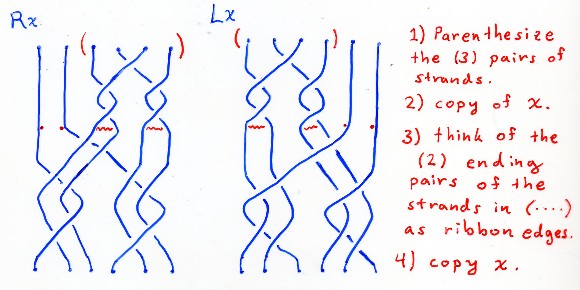 Rx
Lx
1) Parenthesize
the (3) pairs of
strands.
2) copy of x.
3) think of the
(2) ending
pairs of the
strands in (....)
as ribbon edges.
4) copy x.